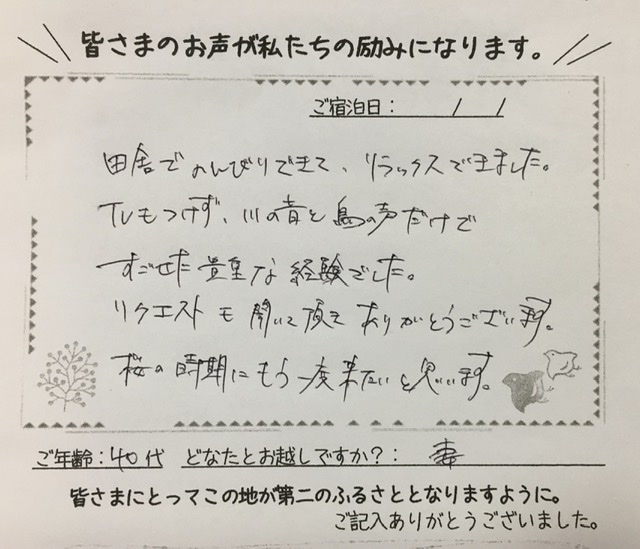 皆さまのお声が私たちの励みになります。
ご宿泊日: / /
田舎でのんびりできて、リラックスできました。
TVもつけず、川の音と鳥の声だけで
すごせた貴重な経験でした。
リクエストも聞いて頂きありがとうございます。
桜の時期にもう一度来たいと思います。
ご年齢:40代 どなたとお越しですか?: 妻
皆さまにとってこの地が第二のふるさととなりますように。
ご記入ありがとうございました。